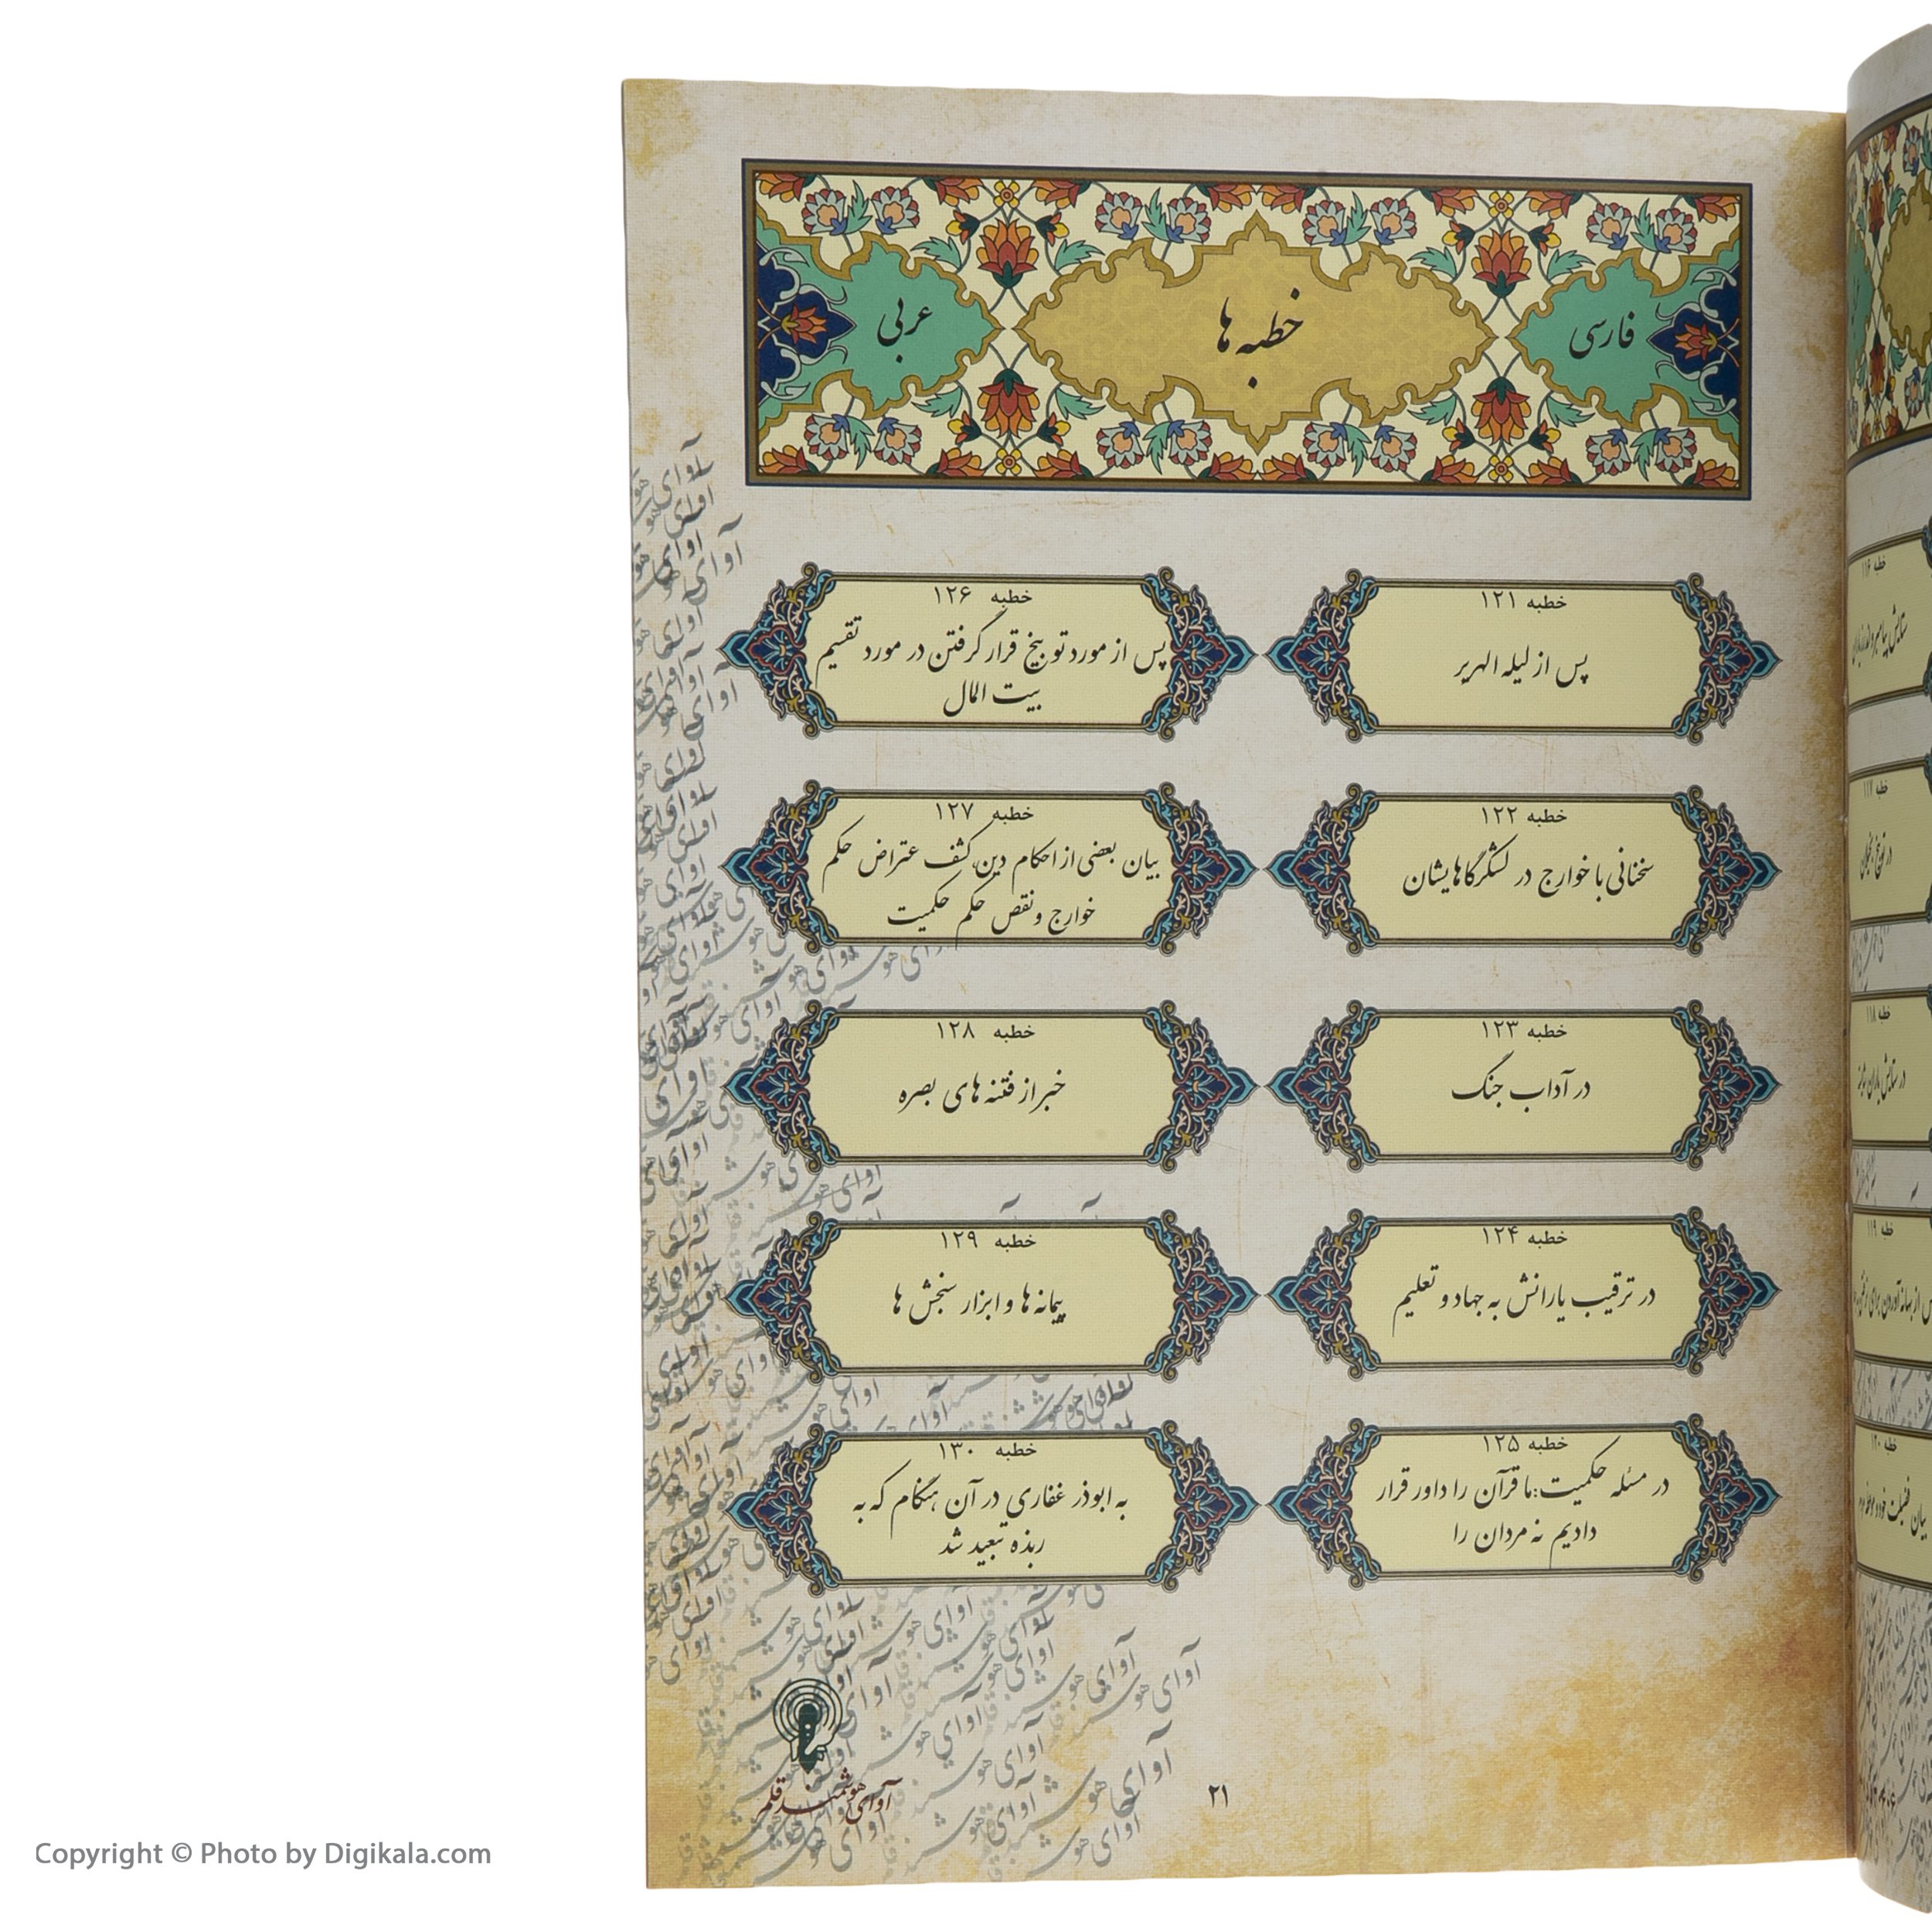 فارسی
خطبه ها
عربی
خطبه ۱۲۱
پس از لیله الهریر
خطبه ۱۲۲
سخنانی با خوارج در لشکرگاهایشان
خطبه ۱۲۳
در آداب جنگ
خطبه ۱۲۴
در ترقیب یارانش به جهاد و تعلیم
خطبه ۱۲۵
در مسئله حکمیت:ما قرآن را داور قرار
دادیم نه مردان را
خطبه ۱۲۶
پس از مورد توبیخ قرار گرفتن در مورد تقسیم
بیت المال
خطبه ۱۲۷
بیان بعضی از احکام دین، کشف عتراض حکم
خوارج و نقص حکم حکمیت
خطبه ۱۲۸
خبر از فتنه های بصره
خطبه ۱۲۹
پیمانه ها و ابزار سنجش ها
خطبه ۱۳۰
به ابوذر غفاری در آن هنگام که به
ربذه تبعید شد
آوای هوشمند قلم
۲۱
خطبه ۱۱۶
خطبه ۱۱۷
خطبه ۱۱۸
خطبه ۱۱۹
خطبه ۱۲۰
Copyright © Photo by Digikala.com